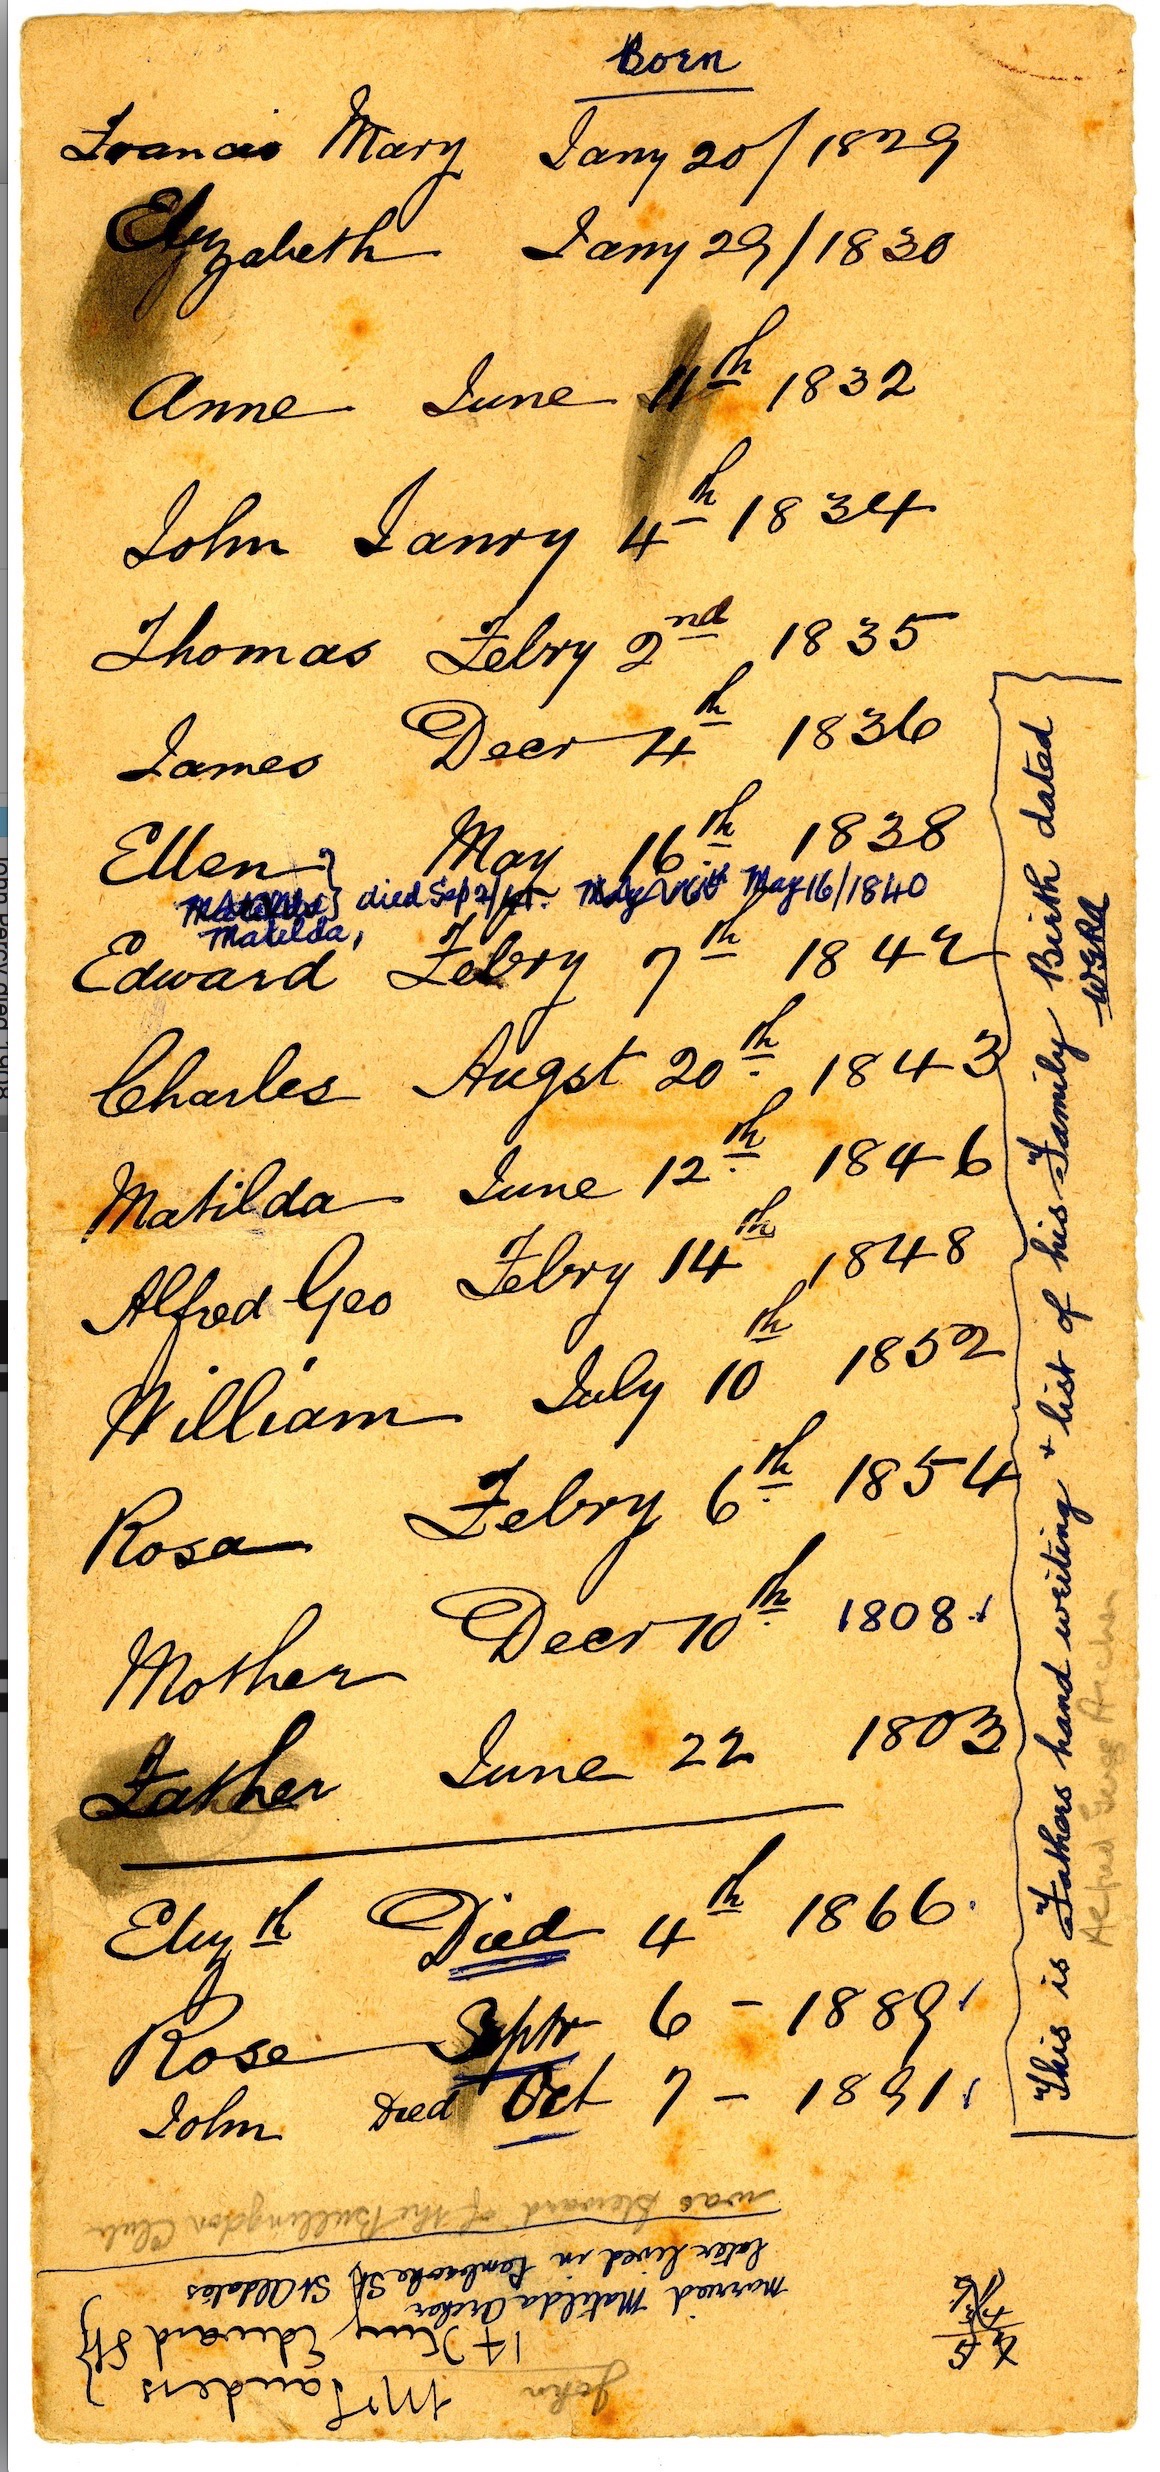 Born
Francis Mary Jany 20/1829
Elyzabeth Jany 29/1830
Anne June 11th 1832
John Janry 4th 1834
Thomas Febry 2nd 1835
James Decr 4th 1836
Ellen } May 16th 1838
Matilda } died Sep 2/45. May 16/1840
Matilda,
Edward Febry 7th 1842
Charles Augst 20th 1843
Matilda June 12th 1846
Alfred Geo Febry 14th 1848
William July 10th 1852
Rosa Febry 6th 1854
Mother Decr 10th 1808
Father June 22 1803
Elyzth Died 4th 1866.
Rose Septr 6 - 1889
John Died Oct 7 - 1891
This is Fathers hand writing + list of his Family Birth dated
WGRA
Alfred George Archer
John
Mr Sanders }
14 King Edward St }
married Matilda Archer
later lived in Pembroke St, St Aldates
was Steward of the Bullingdon Club